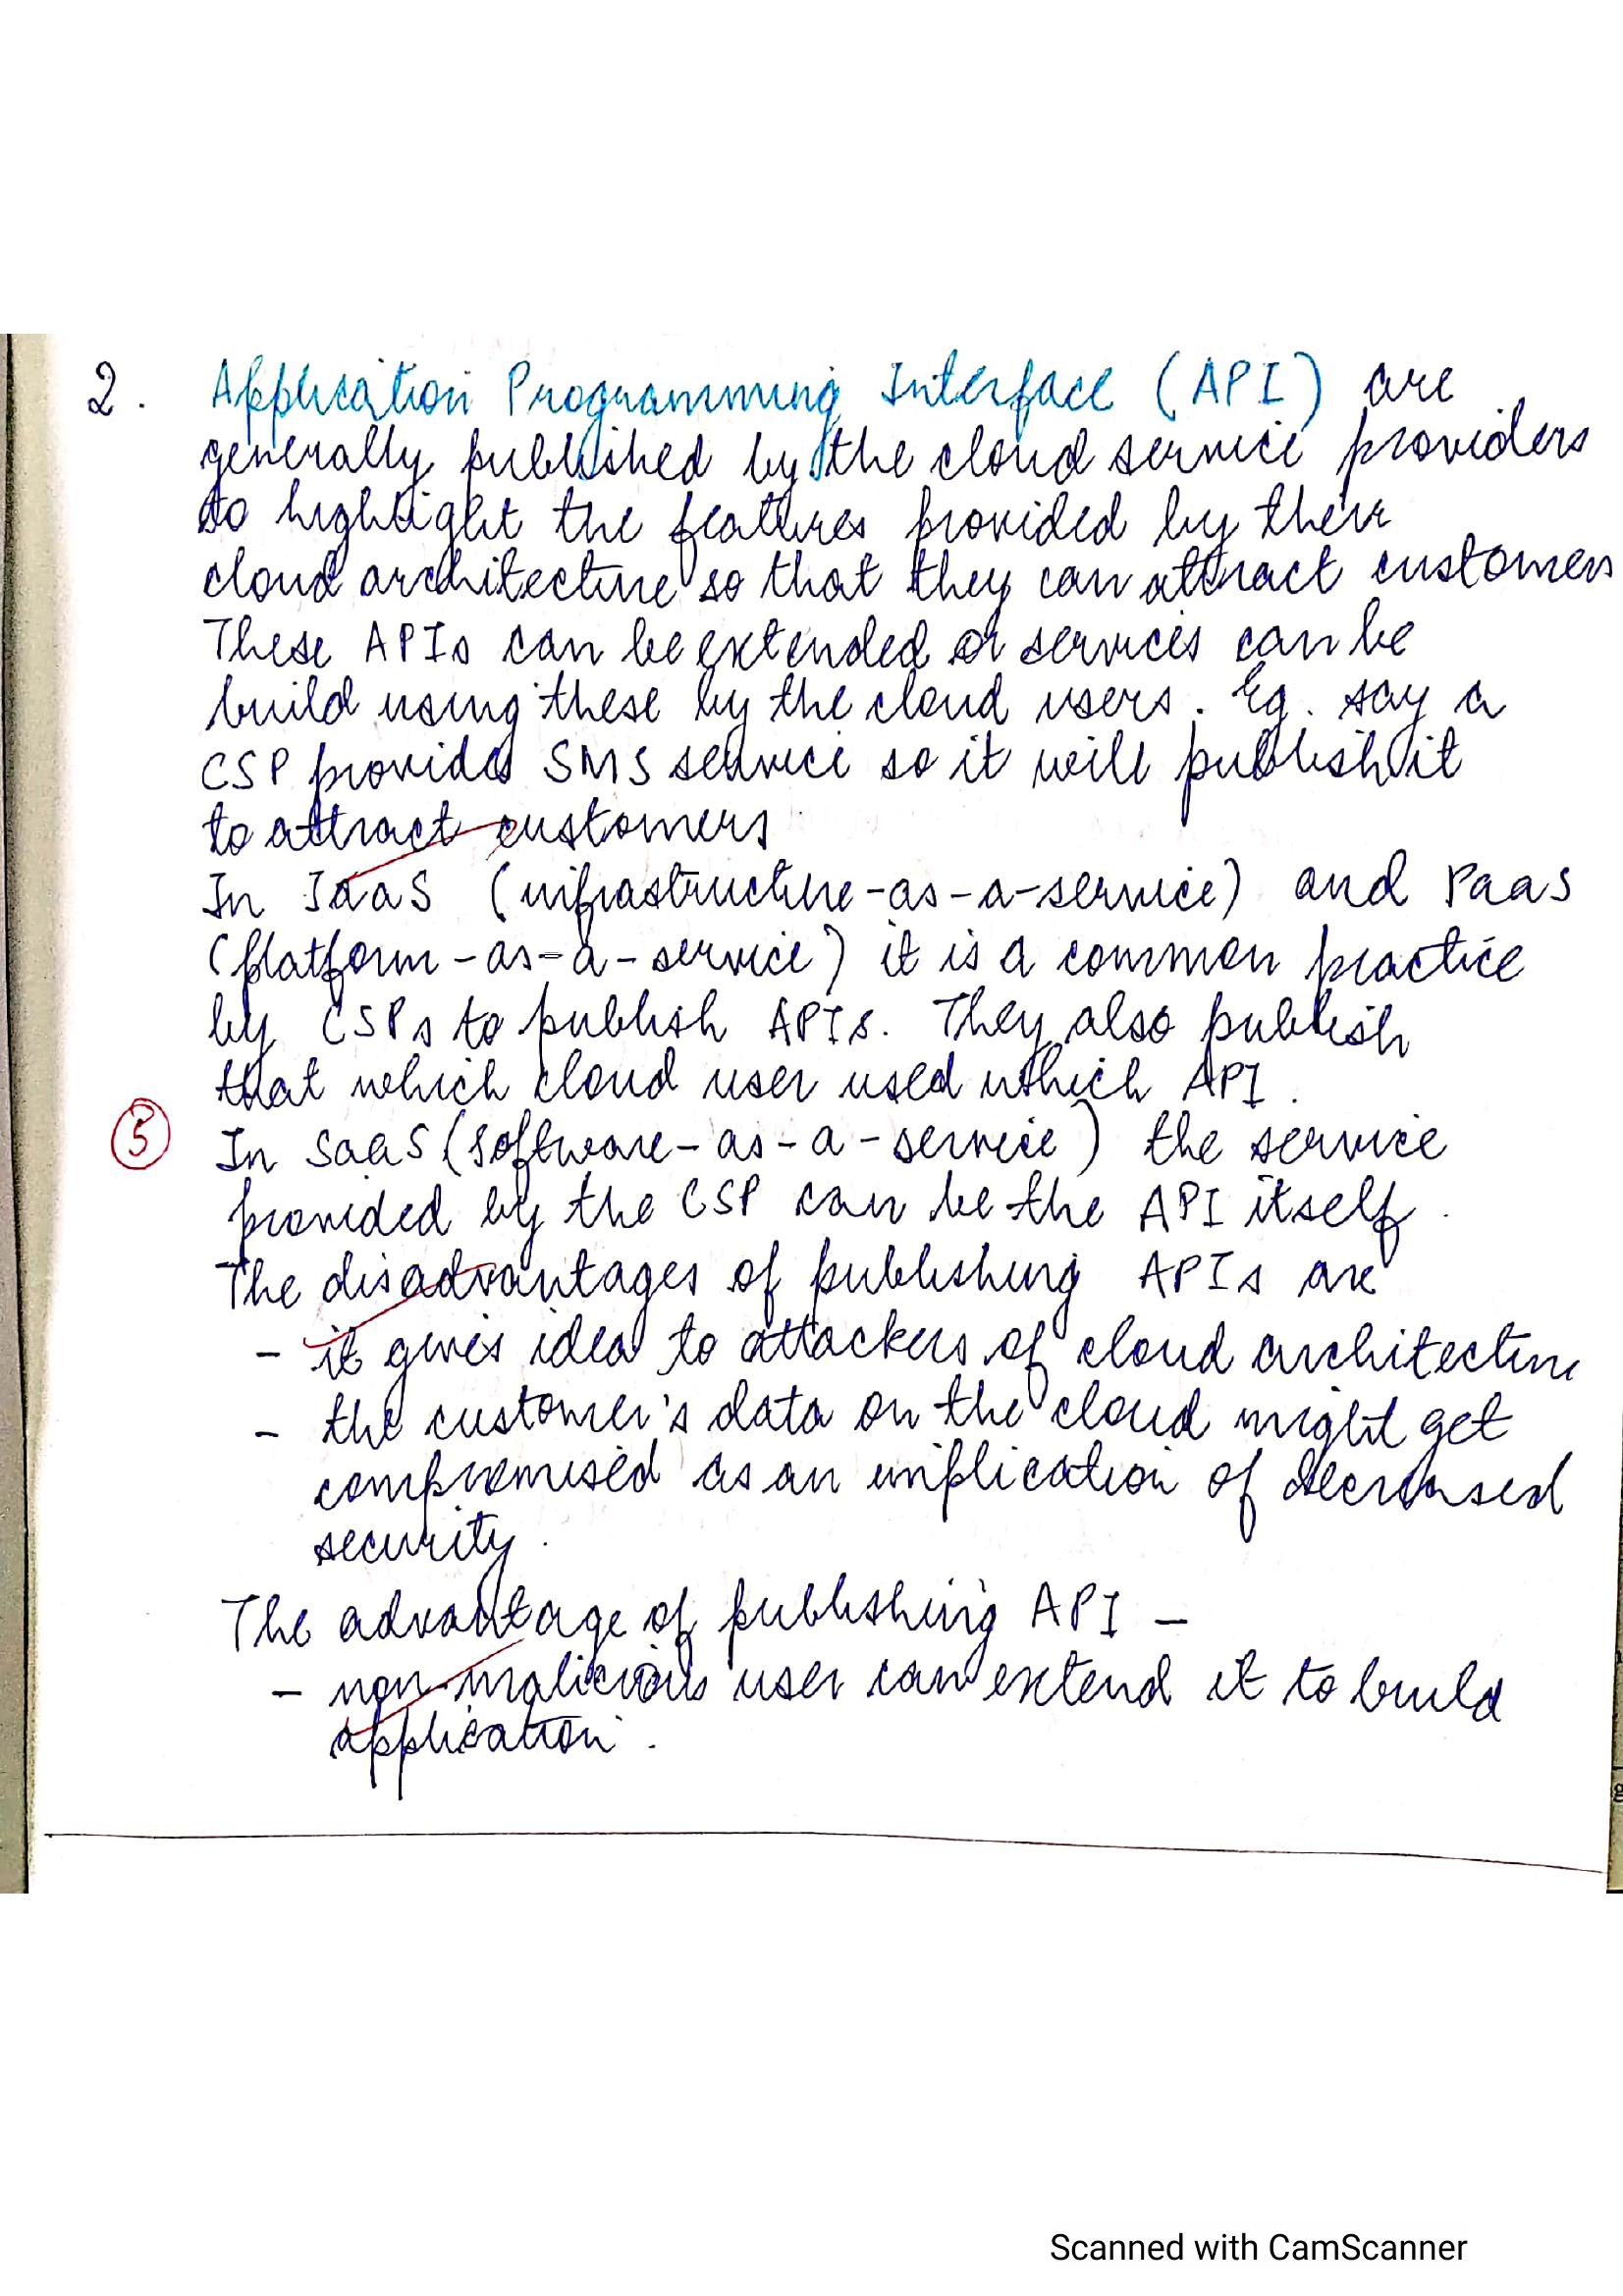 2. Application Programming Interface (API) are
generally published by the cloud service providers
to highlight the features provided by their
cloud architecture so that they can attract customers
These APIs can be extended or services can be
build using these by the cloud users. Eg. say a
CSP provides SMS service so it will publish it
to attract customers
In IaaS (infrastructure-as-a-service) and PaaS
(platform-as-a-service) it is a common practice
by CSPs to publish APIs. They also publish
that which cloud user used which API.
5
In SaaS (software-as-a-service) the service
provided by the CSP can be the API itself.
The disadvantages of publishing APIs are
- it gives idea to attackers of cloud architecture
- the customer's data on the cloud might get
compromised as an implication of decreased
security.
The advantage of publishing API -
- non-malicious user can extend it to build
application.
Scanned with CamScanner